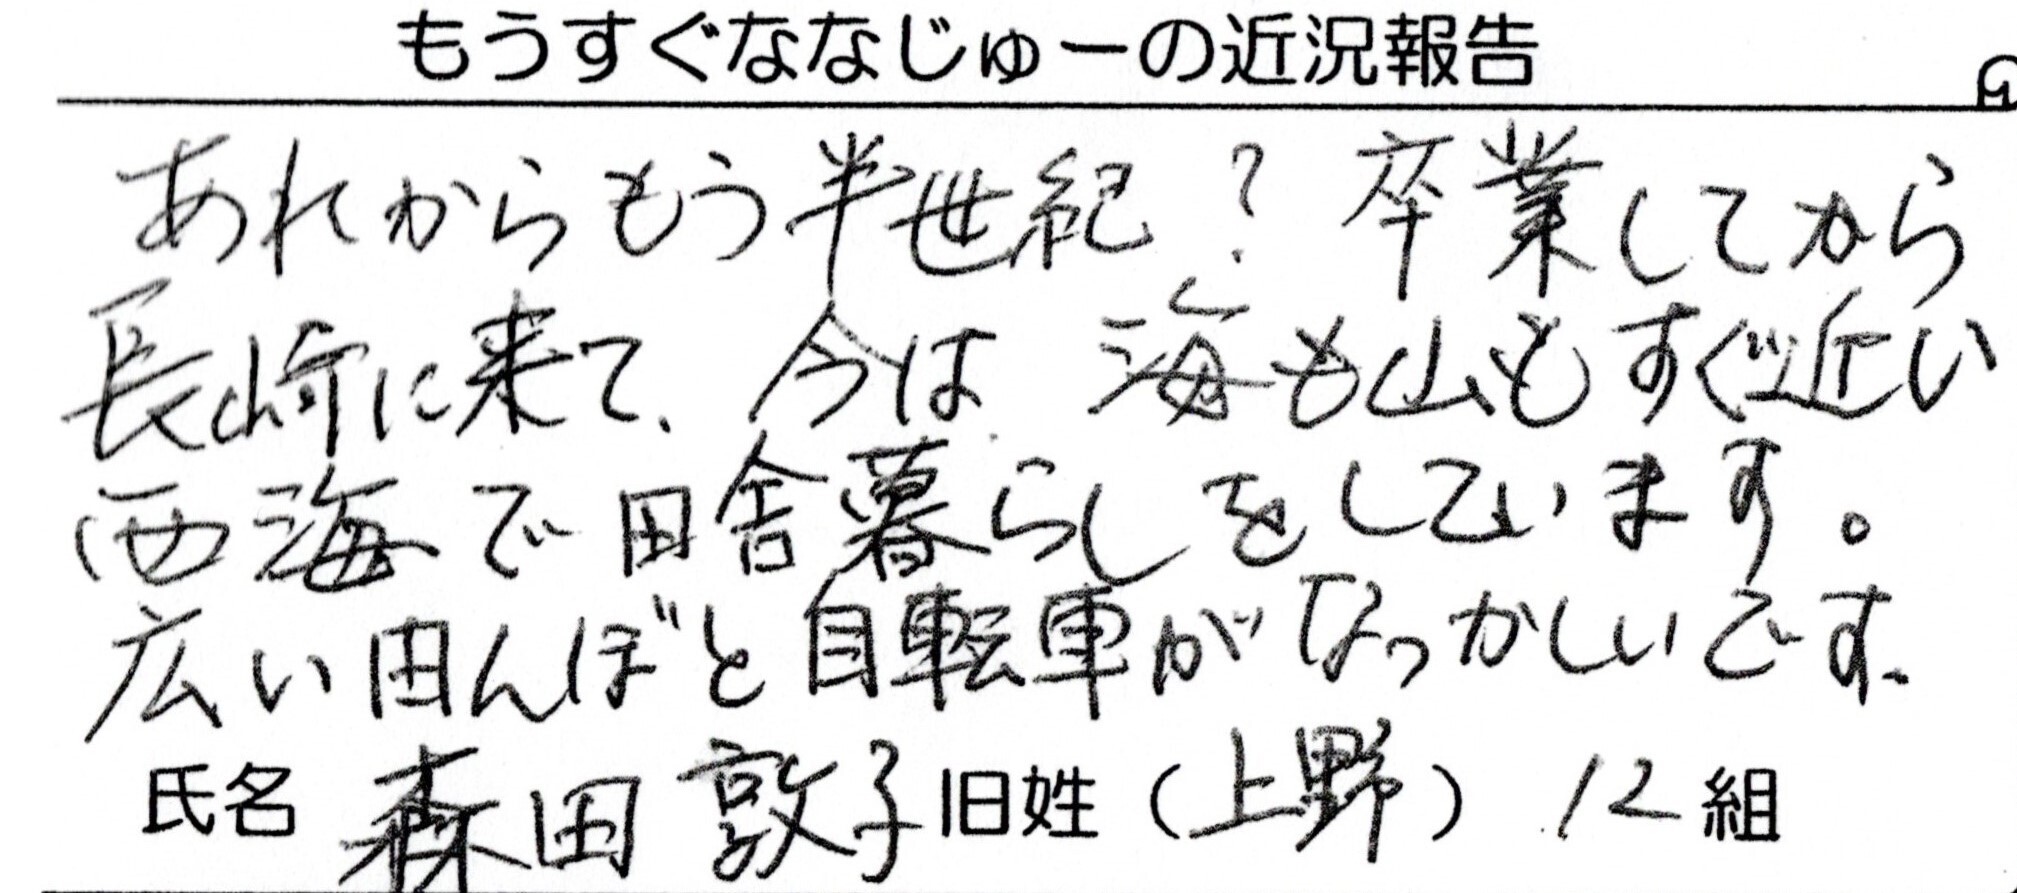 もうすぐななじゅーの近況報告
あれからもう半世紀？卒業してから
長崎に来て、今は 海も山もすぐ近い
西海で田舎暮らしをしています。
広い田んぼと自転車がなつかしいです。
氏名 森田 敦子 旧姓（上野） 12 組